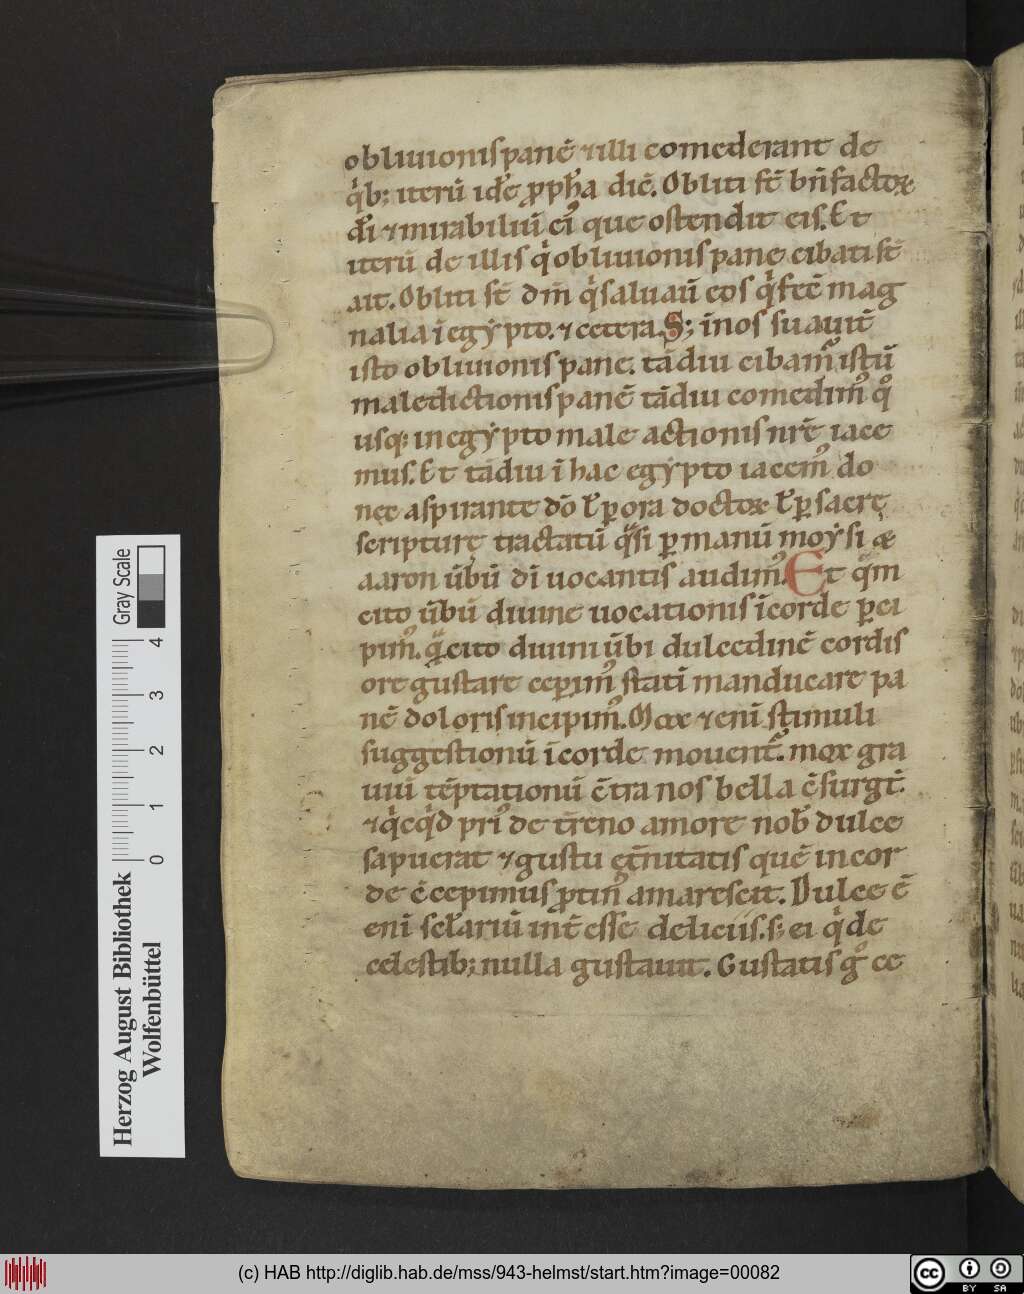 obliuionis panē ⁊ illi comederant de
q̇b; iterū idē ꝓpħa dic̄. Obliti sē bn̄factoꝝ
dī ⁊ mirabiliū ei᷒ que ostendit eis. Et
iterū de illis q̇ obliuionis pane cibati sē
ait. Obliti sē dm̄ q̇ saluaū eos q̇ fec̄ mag
nalia ī egẏpto. ⁊ cetera. S; īnos suauit̄
isto obliuionis pane. tādiu cibam᷒ istū
maledictionis panē tādiu comedim᷒ qͦ
usq; in egẏpto male actionis nr̄e iace
mus. Et tādiu ī hac egẏpto iacem᷒ do
nec aspirante dō ł ꝑ ora doctoꝝ ł ꝑ sacrę
scripturę tractatū qᵃsi ꝑ manū moẏsi &
aaron ūbū dī uocantis audim᷒. Et qᵃm
cito ūbū diuine uocationis ī corde ꝑci
pim᷒. qᵃ cito diuini ūbi dulcedinē cordis
ore gustare cepim᷒ statī manducare pa
nē doloris incipim᷒. Mox ⁊ enī stimuli
suggestionū ī corde mouent᷑. mox gra
uiū tēptationū c̄tra nos bella c̄surgt̄.
⁊ q̇cq̇d pri᷒ de t̄reno amore nob̄ dulce
sapuerat ⁊ gustu et̄nitatis quē in cor
de c̄cepimus ꝓtin᷒ amarescit. Dulce ē
enī scl̄ariū int̄esse deliciis. s; ei q̇ de
celestib; nulla gustauit. Gustatis gͦ ce
Herzog August Bibliothek
Wolfenbüttel
Gray Scale
0 1 2 3 4
(c) HAB http://diglib.hab.de/mss/943-helmst/start.htm?image=00082
cc BY SA